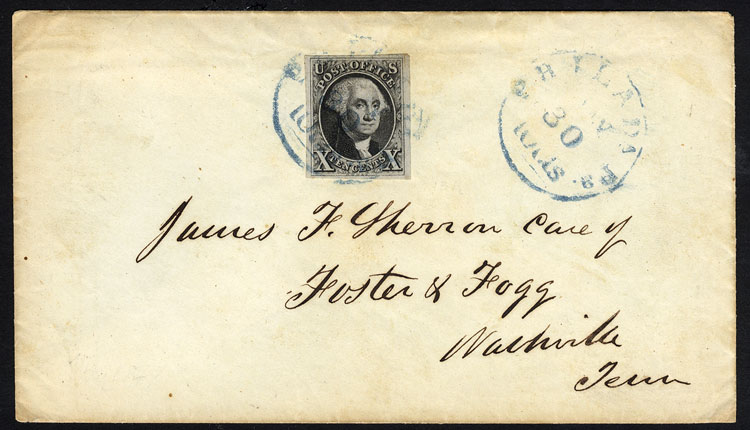 U S
POST OFFICE
X TEN CENTS X
PHILADA Pa.
30
10cts
James F. Sherron Care of
Foster & Fogg
Nashville
Tenn